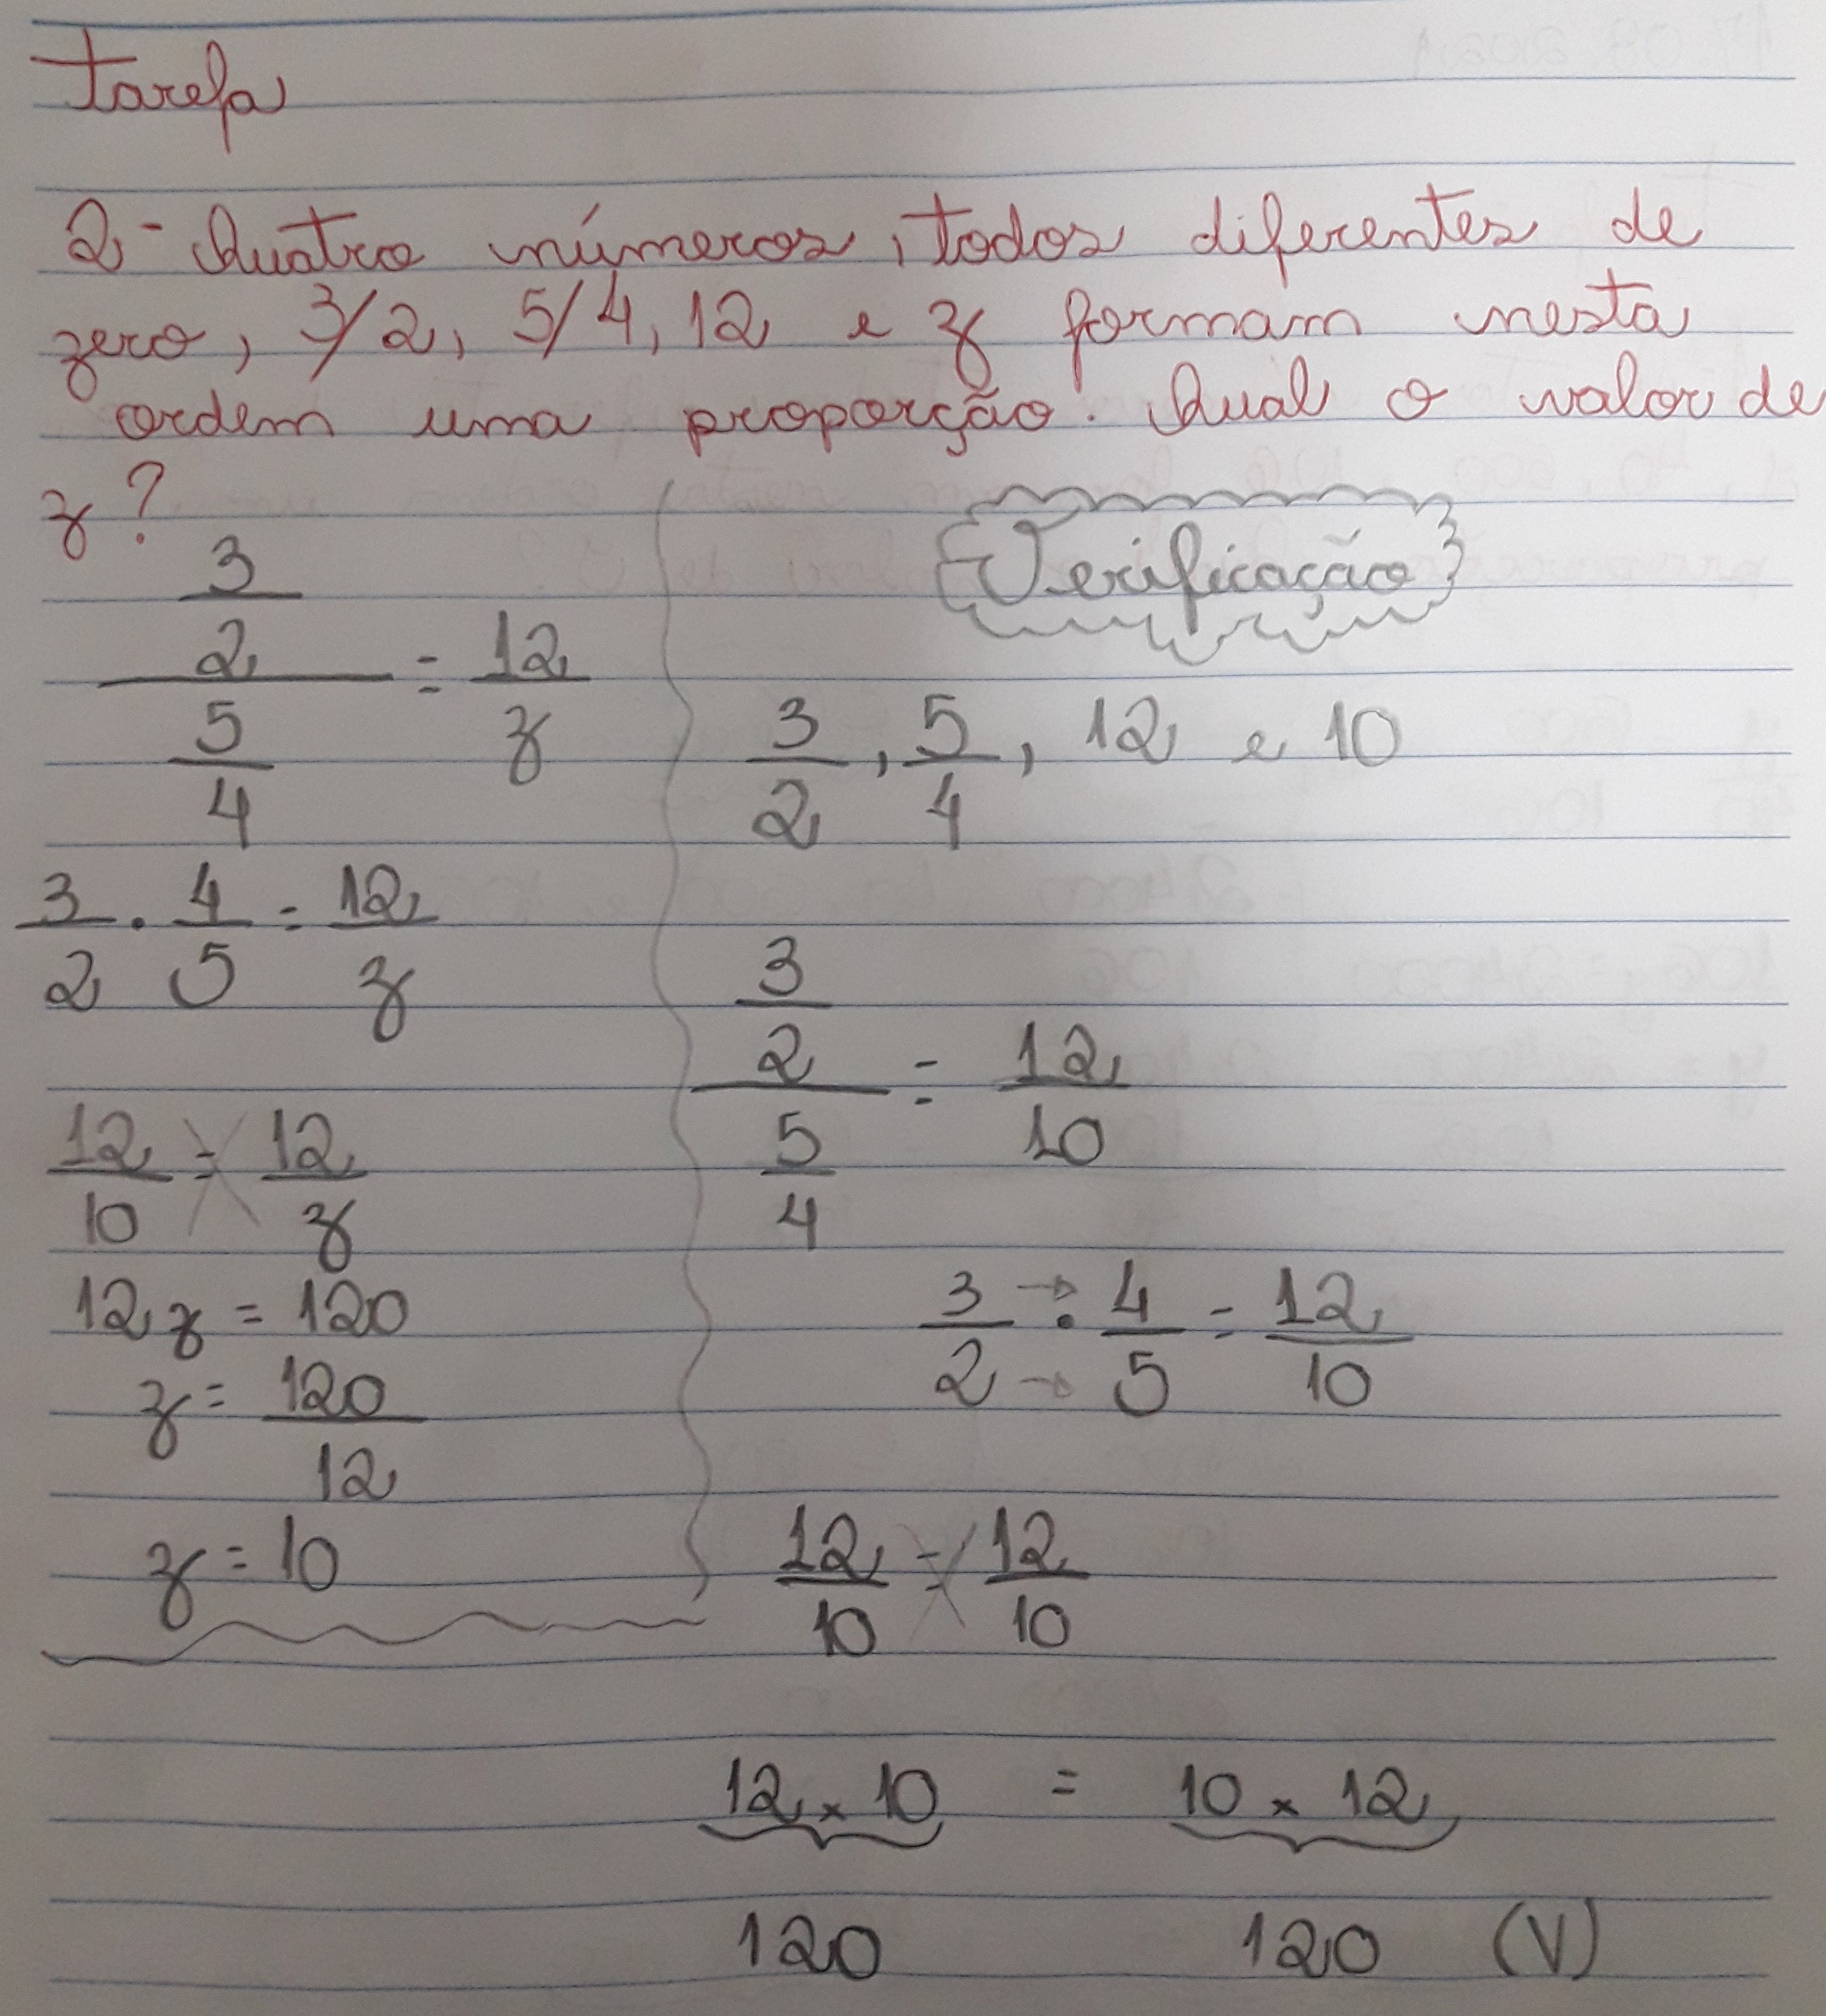 Tarefa
2- Quatro números, todos diferentes de
zero, 3/2, 5/4, 12 e z formam nesta
ordem uma proporção. Qual o valor de
z?
3
2 = 12
5 z
4
3 . 4 = 12
2 5 z
12 = 12
10 z
12z = 120
z = 120
12
z = 10
Verificação
3 , 5 , 12 e 10
2 4
3
2 = 12
5 10
4
3 → . 4 = 12
2 → 5 10
12 = 12
10 10
12 x 10 = 10 x 12
120 120 (V)